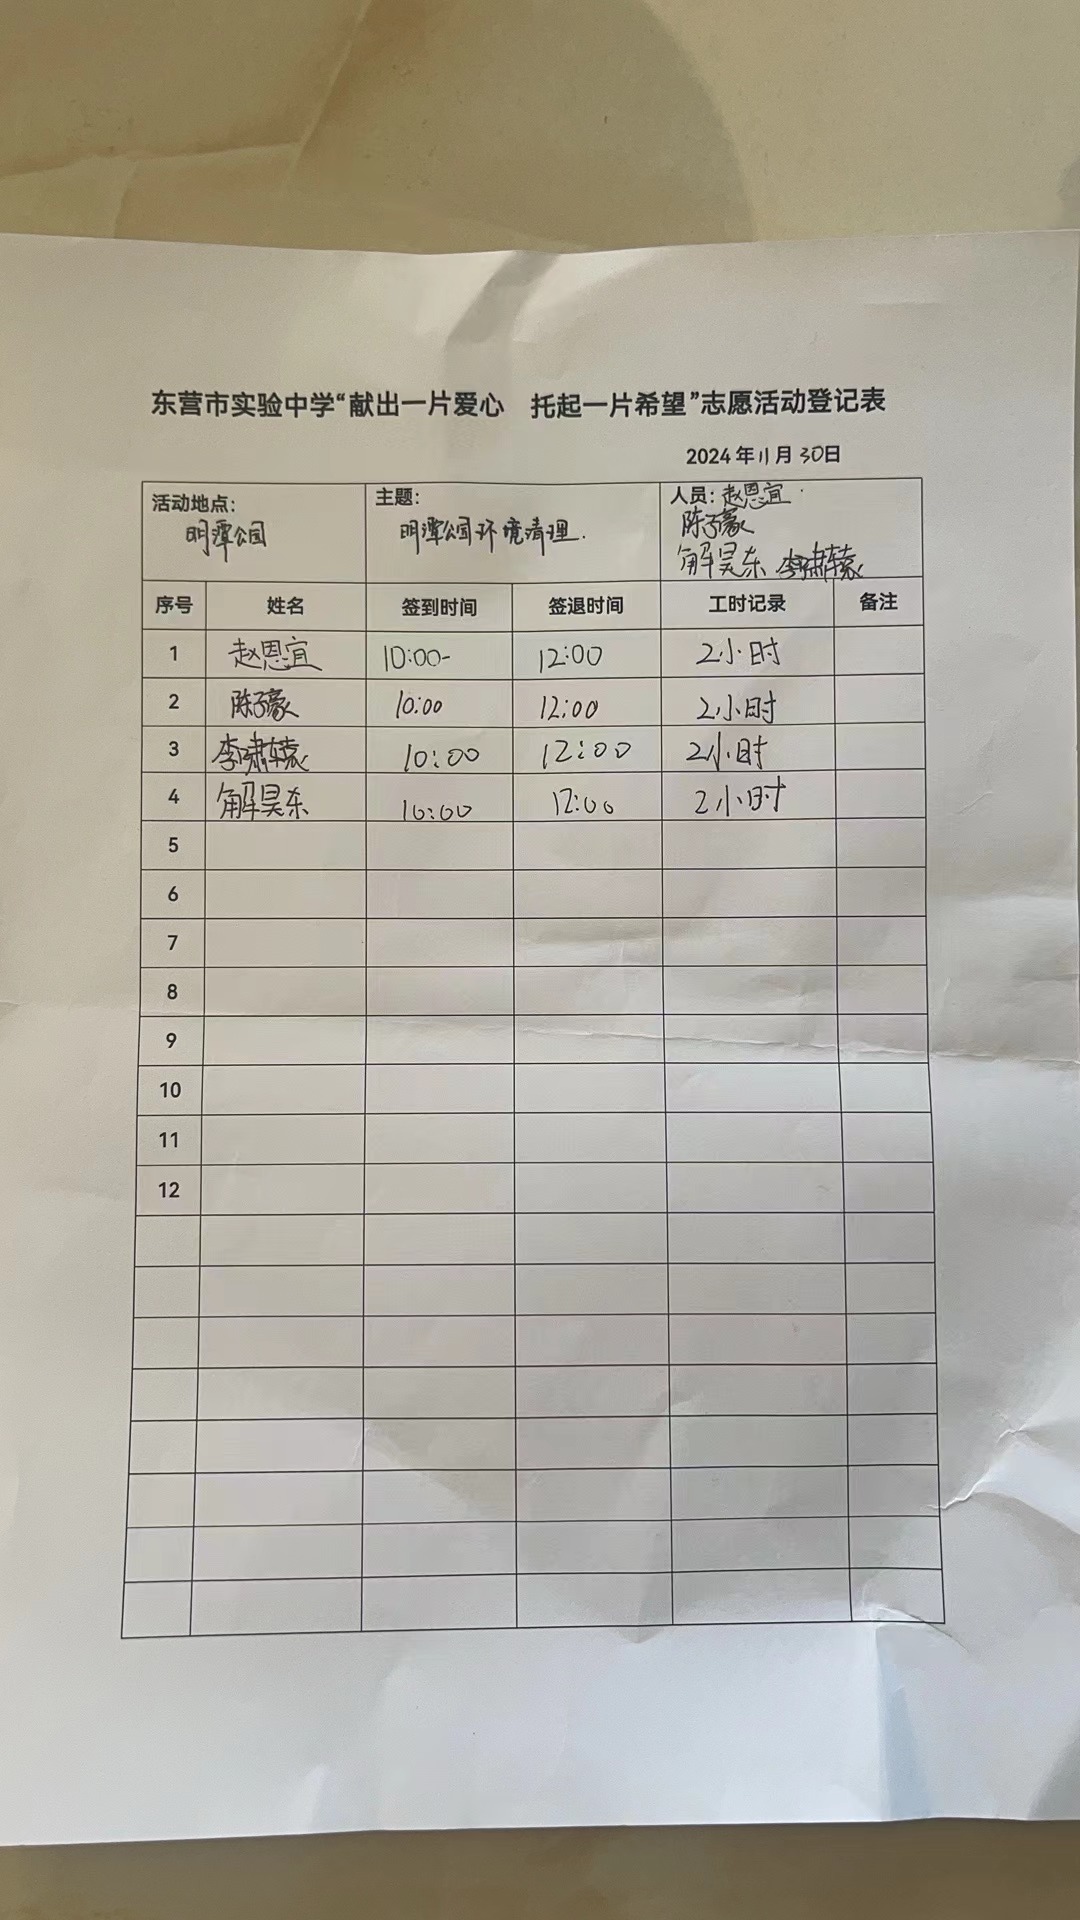 东营市实验中学“献出一片爱心 托起一片希望”志愿活动登记表
2024年11月30日
活动地点: 主题: 人员: 赵恩宜
明潭公园 明潭公园环境清理. 陈子豪
解昊东 李啸辕
序号 姓名 签到时间 签退时间 工时记录 备注
1 赵恩宜 10:00- 12:00 2小时
2 陈子豪 10:00 12:00 2小时
3 李啸辕 10:00 12:00 2小时
4 解昊东 10:00 12:00 2小时
5
6
7
8
9
10
11
12